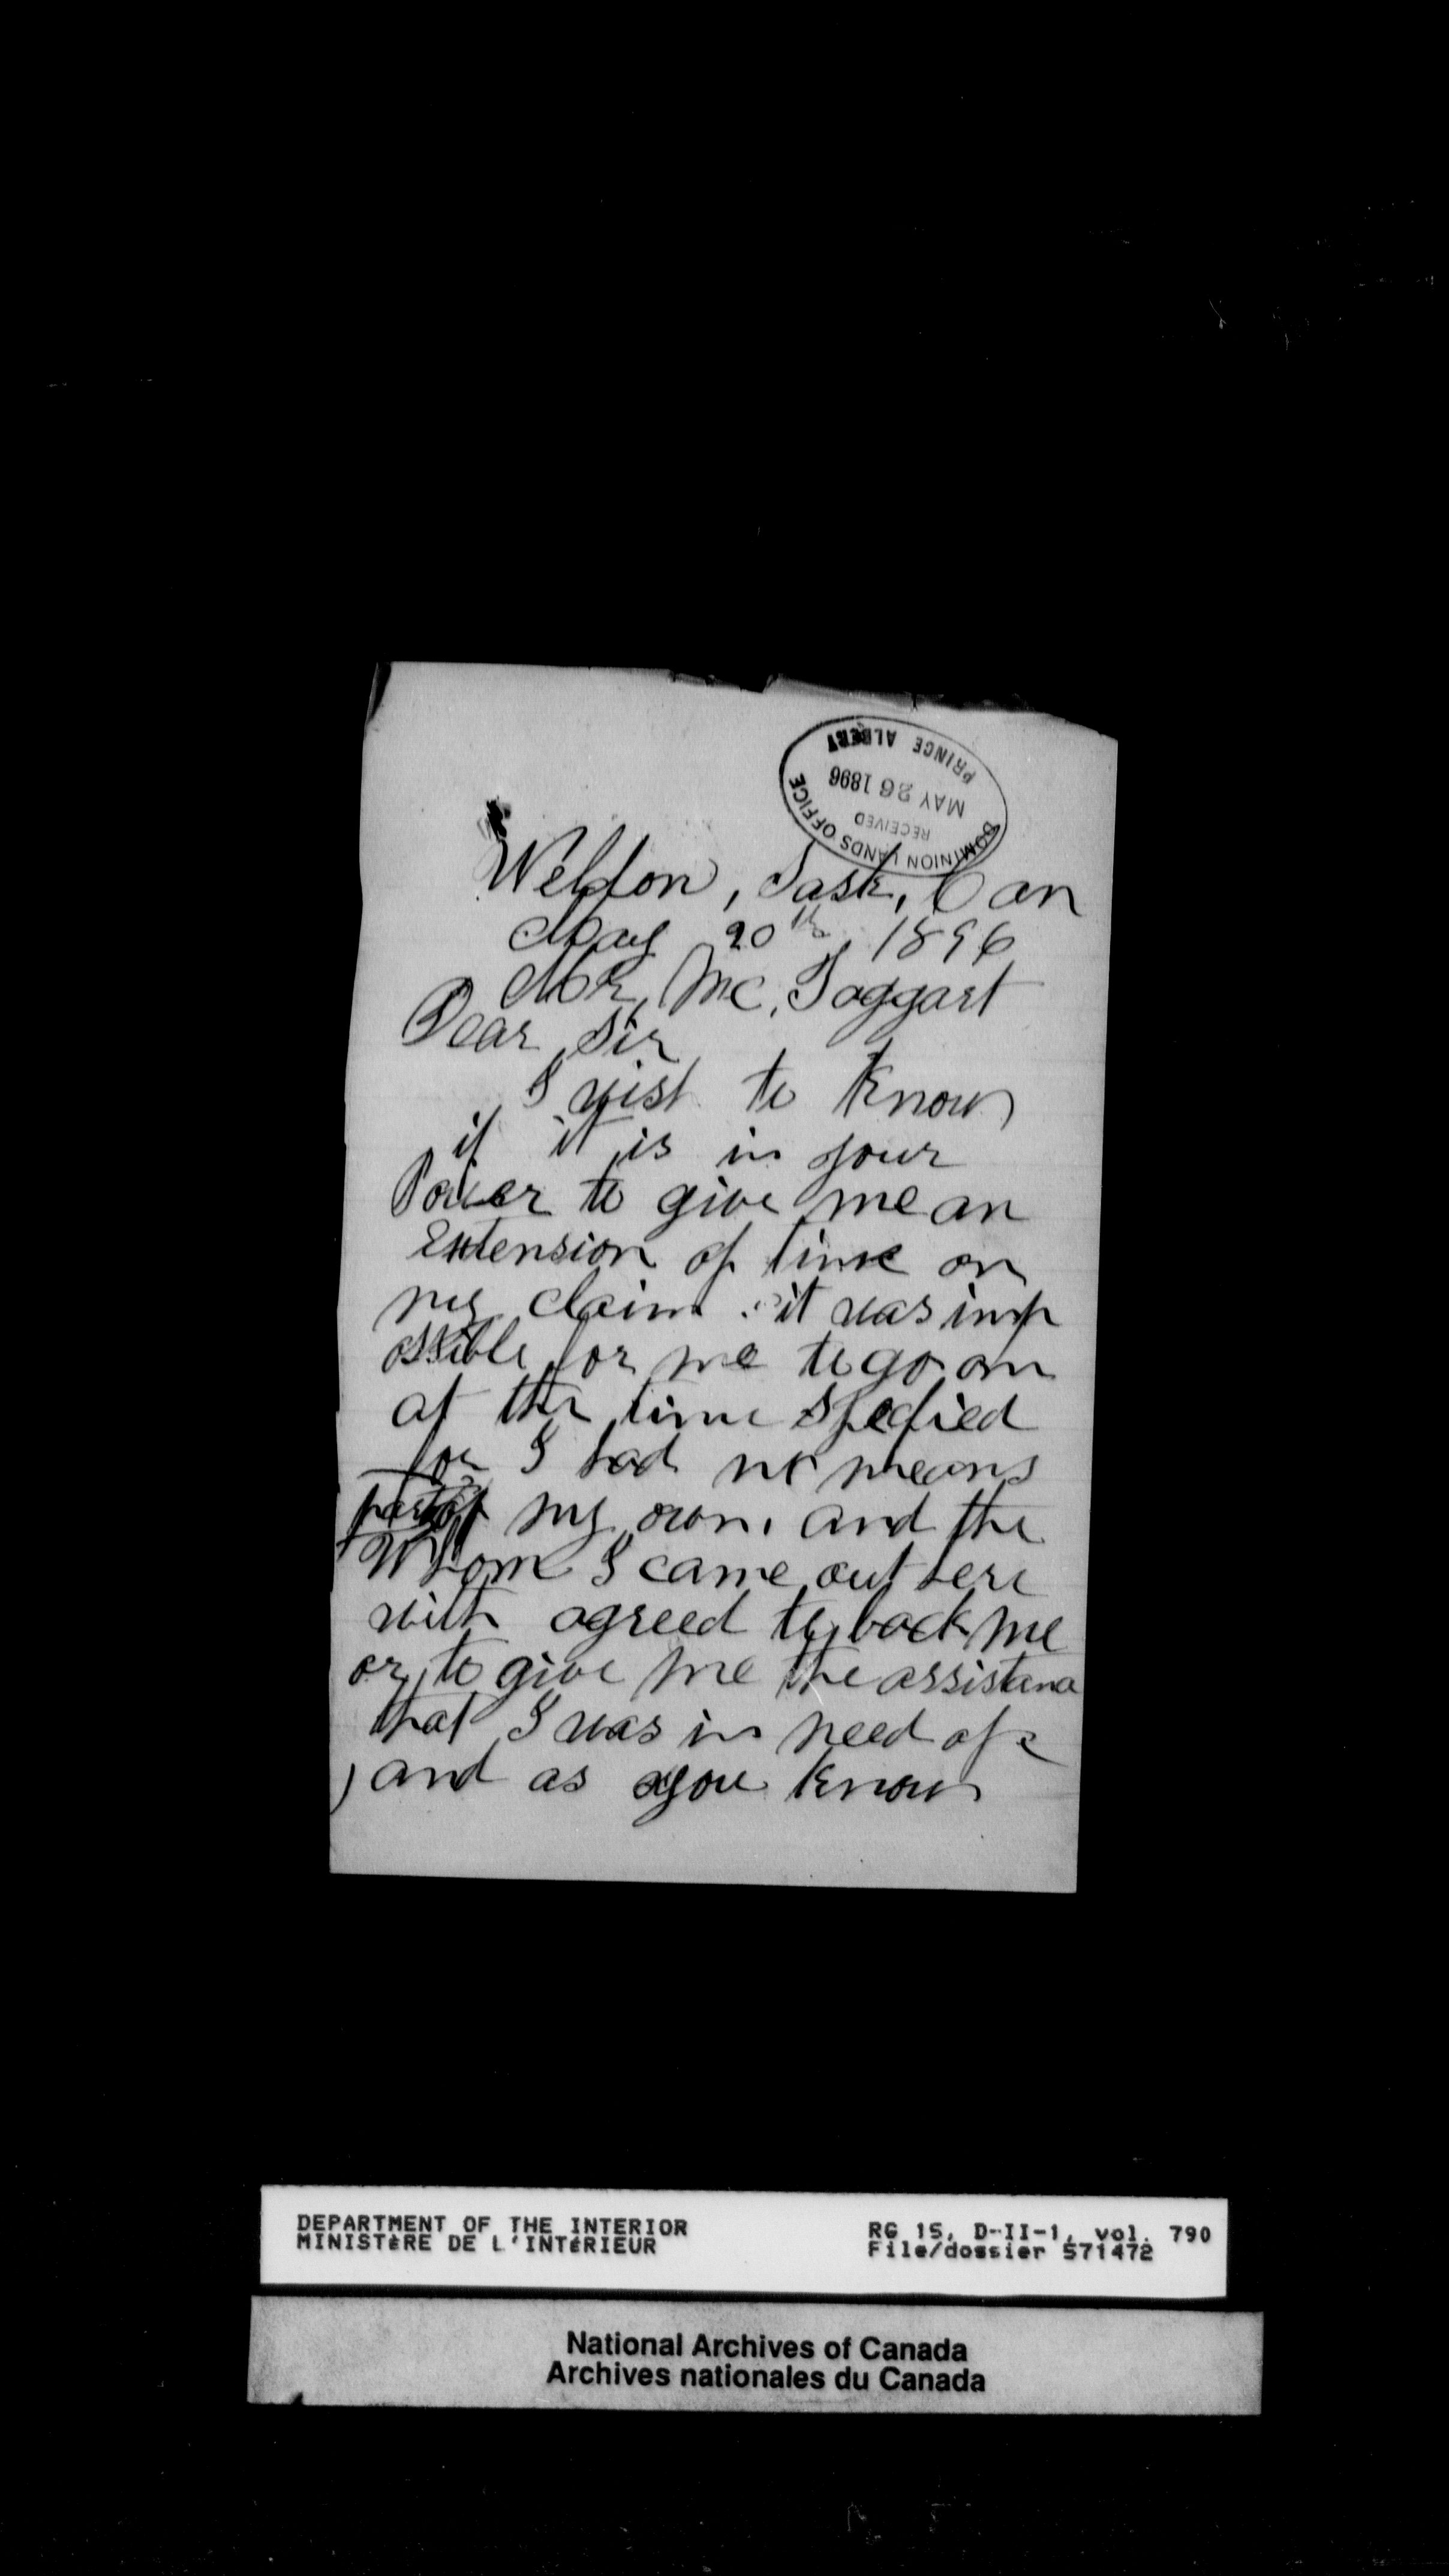 DOMINION LANDS OFFICE
RECEIVED
MAY 26 1896
PRINCE ALBERT
Weldon, Sask, Can
May 20th, 1896
Mr, Mc, Taggart
Dear Sir
I wish to know
if it is in your
Power to give me an
Extension of time on
my claim. it was imp
ossible for me to go on
at the time Specfied
for I had no means
of my own, and the
Whom I came out here
with agreed to back me
or, to give me the assistanc
that I was in need of
, and as you know
DEPARTMENT OF THE INTERIOR
MINISTèRE DE L'INTéRIEUR
RG 15, D-II-1, vol. 790
File/dossier 571472
National Archives of Canada
Archives nationales du Canada